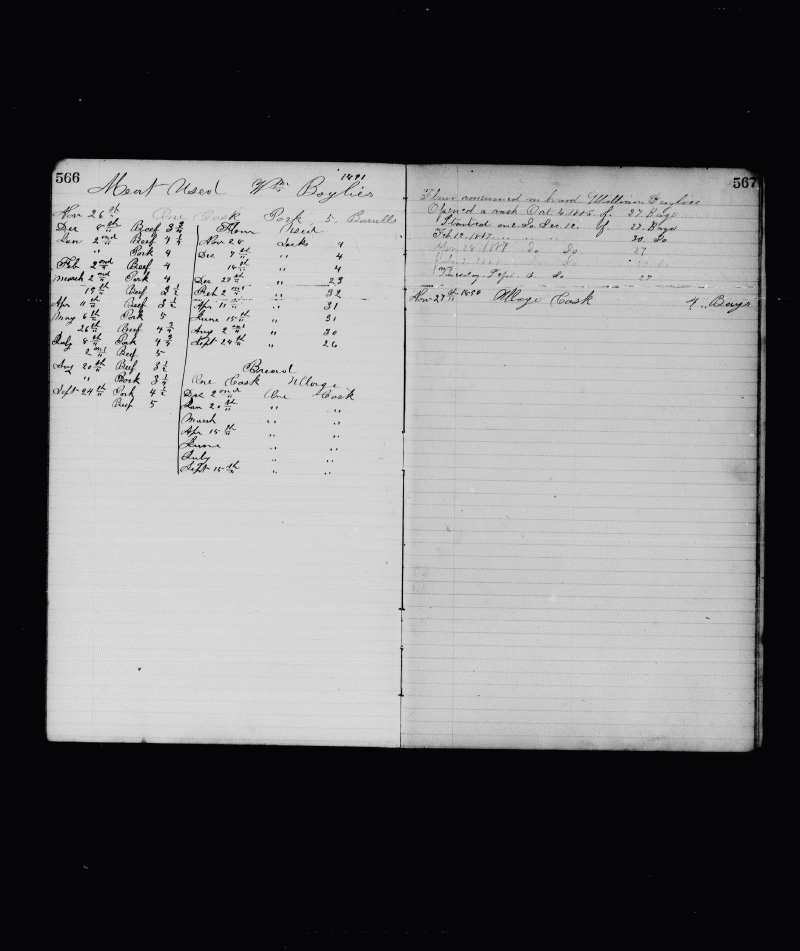 566
1891
Meat Used Wm Baylies
Nov 26th One Cask Pork 5 Barrells
Dec 8th Beef 3 3/4
Jan 2nd Beef 4 1/4
" Pork 4
Feb 2nd Beef 4
March 2nd Pork 4
15th Beef 3 1/2
Apr 11th Beef 3 1/2
May 6th Pork 5
26th Beef 4 3/4
July 8th Pork 4 3/4
2nd Beef 5
Aug 20th Beef 3 1/2
" Pork 3 1/2
Sept 24th Pork 4 1/2
Beef 5
Flour Used
Nov 28 Sacks 4
Dec 7th " 4
14th " 4
Dec 29th " 29
Feb 2nd " 32
Apr 11th " 31
June 15th " 31
Aug 2nd " 30
Sept 24th " 26
Bread
One Cask Ullage
Dec 2nd One Cask
Jan 20th " "
March " "
Apr 15th " "
June " "
July " "
Sept 15th " "
567
Flour consumed on board William Baylies
Opened a cask Oct 4 1886 of 27 Bags
Started on 2 Do Dec 12 of 27 Bags
Feb 12 1887 " " " 30 Do
1887 Do Do 27
Sept 3 Do 27
Nov 27th 1890 Ullage Cask 4 Bags